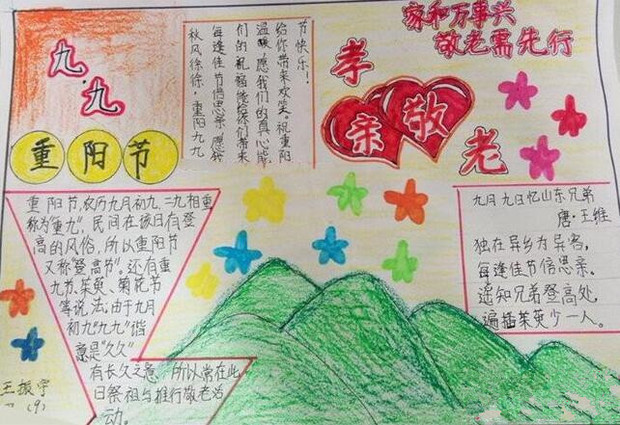 九·九
重阳节
秋风徐徐·重阳九九
每逢佳节倍思亲,愿我
们的祝福能给你们带来
温暖,愿我们的真心能
给你带来欢笑。祝重阳
节快乐!
家和万事兴
敬老需先行
孝
亲敬
老
重阳节,农历九月初九,二九相重
称为"重九",民间在该日有登
高的风俗,所以重阳节
又称"登高节"。还有重
九节、茱萸、菊花节
等说法,由于九月
初九"九九"谐
意是"久久"
有长久之意,所以常在此
日祭祖与推行敬老活
动。
九月九日忆山东兄弟
唐·王维
独在异乡为异客,
每逢佳节倍思亲。
遥知兄弟登高处,
遍插茱萸少一人。
王振宇
(9)